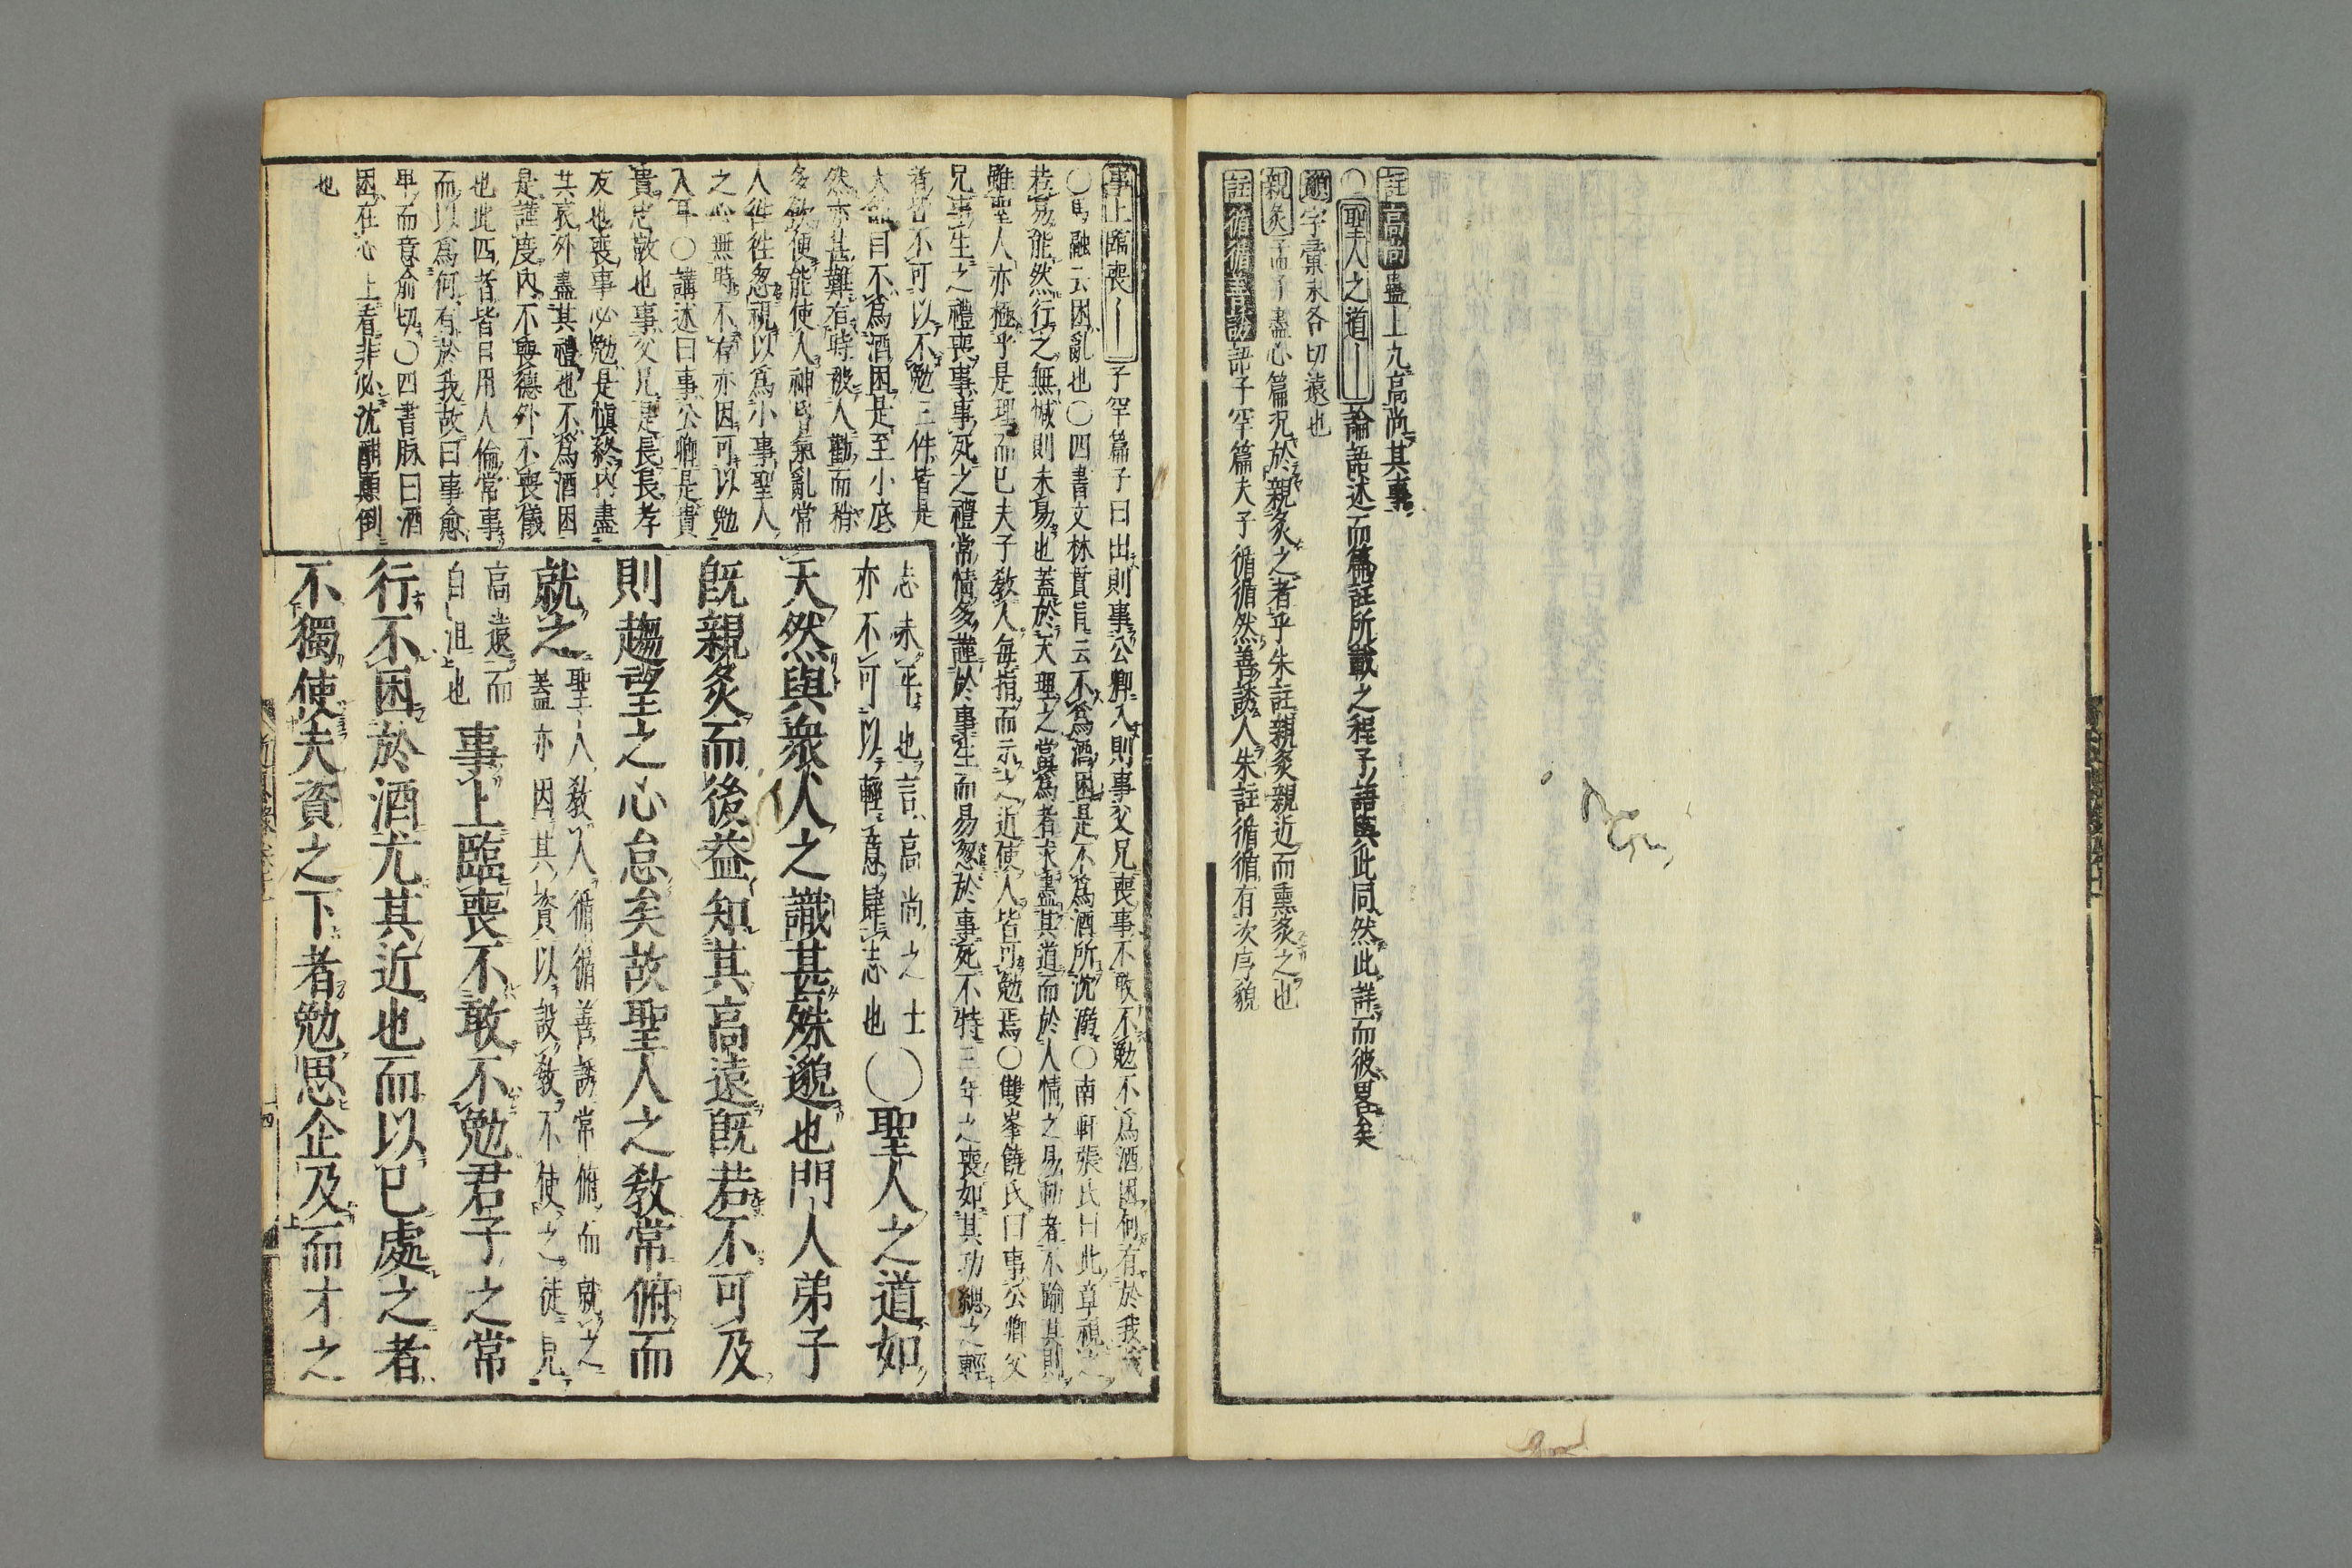 註高尚蠱上九高尚其事
〇聖人之道〡論語述而篇註所載之程子語與此同然此詳而彼畧矣
邈字彙末各切遠也
親炙孟子盡心篇况於親炙之者乎朱註親炙親近而熏炙之也
註循循善誘語子罕篇夫子循循然善誘人朱註循循有次序貌
事上臨喪〡子罕篇子曰出則事公卿入則事父兄喪事不敢不勉不為酒困何有於我哉
〇馬融云困亂也〇四書文林貫旨云不為酒困是不為酒所沈溺〇南軒張氏曰此章視之
若易能然行之無憾則未易也蓋於天理之當為者求盡其道而於人情之易動者不踰其則
雖聖人亦極乎是理而已夫子教人每指而示之近使人皆可勉焉〇雙峯饒氏曰事公卿父
兄事生之禮喪事事死之禮常情多謹於事生而易忽於事死不特三年之喪如其功緦之輕
者皆不可以不勉三件皆是
大節目不為酒困是至小底
然亦甚難有時被人勸而稍
多飲便能使人神昏氣亂常
人徃徃忽視以為小事聖人
之心無時不存亦因可以勉
人耳〇講述曰事公卿是貴
貴忠敬也事父兄是長長孝
友也喪事必勉是愼終內盡
其哀外盡其禮也不為酒困
是謹度內不喪德外不喪儀
也此四者皆日用人倫常事
而以為何有於我故曰事愈
卑而意俞切〇四書脉曰酒
困在心上看非必沈酗顚倒
也
志未平也言高尚之士
亦不可以輕意肆志也〇聖人之道如
天然與衆人之識甚殊邈也門人弟子
旣親炙而後益知其高遠旣若不可及
則趨望之心怠矣故聖人之敎常俯而
就之聖人敎人循循善誘常俯而就之
蓋亦因其資以設敎不使之徒見
高遠而
自沮也事上臨喪不敢不勉君子之常
行不困於酒尤其近也而以已處之者
不獨使夫資之下者勉思企及而才之